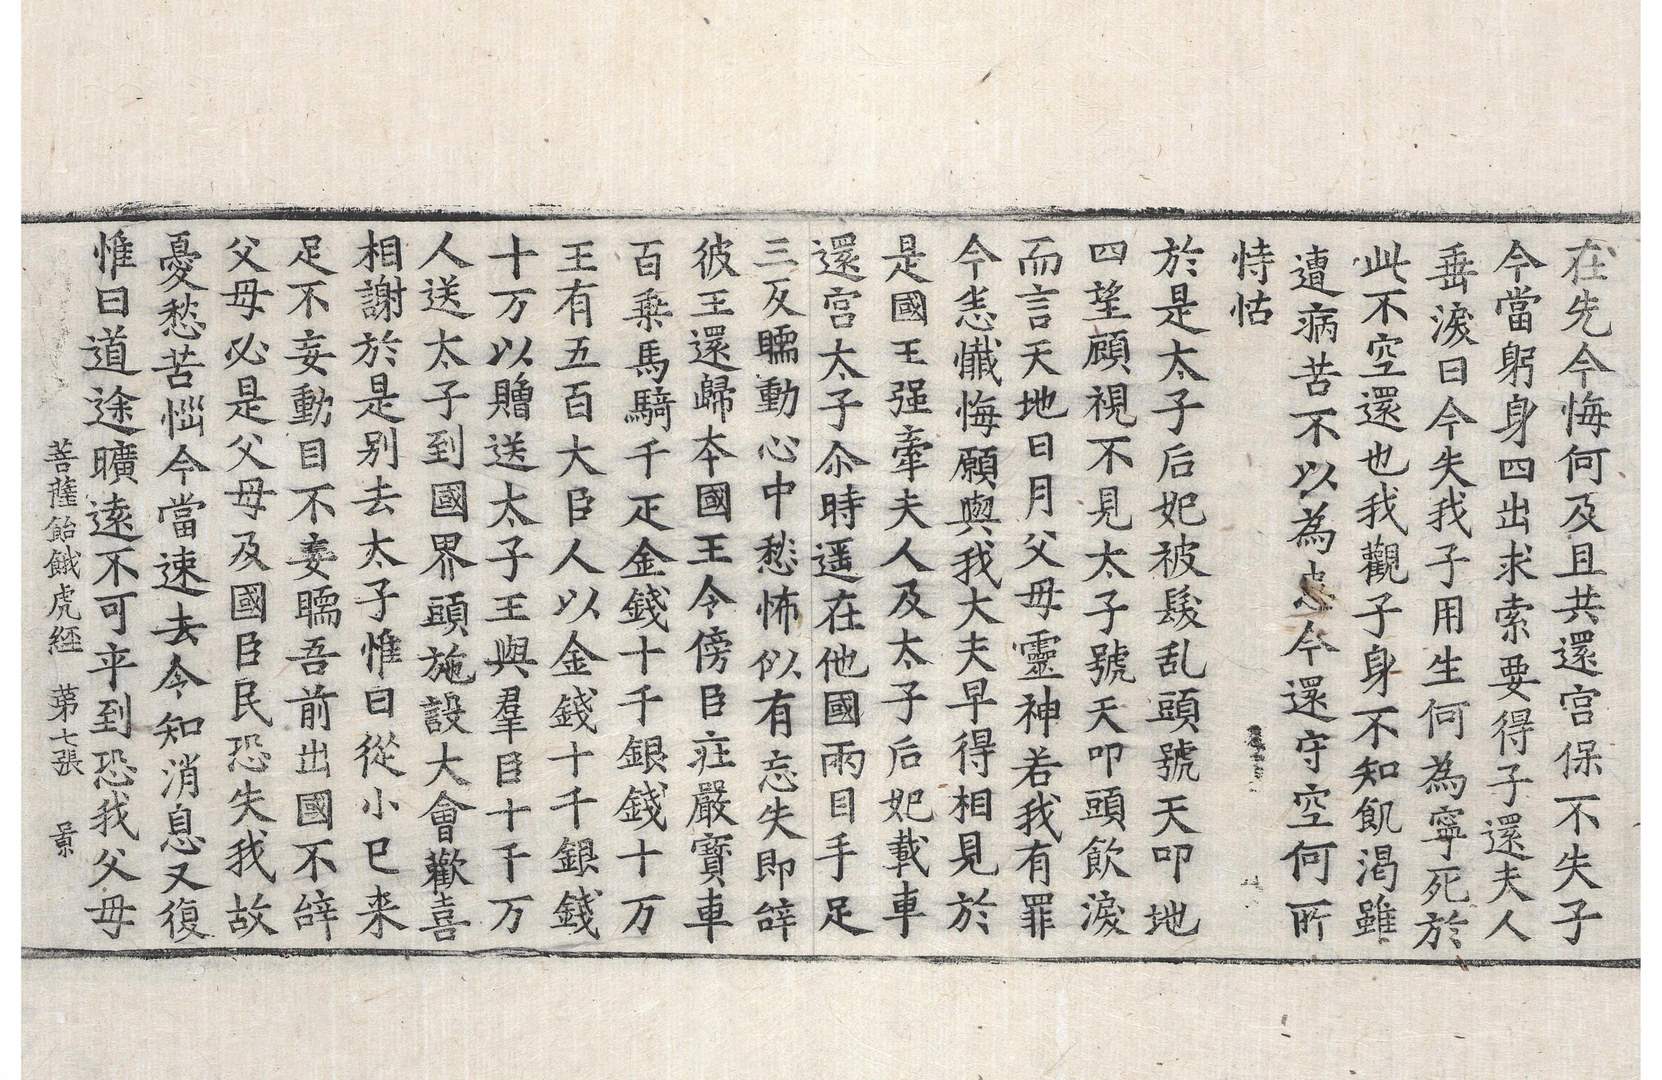 在先今悔何及且共還宫保不失子
今當躬身四出求索要得子還夫人
垂淚曰今失我子用生何為寧死於
此不空還也我觀子身不知飢渴雖
遭病苦不以為患今還守空何所
恃怙
於是太子后妃被髮乱頭號天叩地
四望顧視不見太子號天叩頭飲淚
而言天地日月父母靈神若我有罪
今恙懺悔願與我大夫早得相見於
是國王强牽夫人及太子后妃載車
還宫太子尒時遥在他國兩目手足
三反瞤動心中愁怖似有忘失即辝
彼王還歸本國王令傍臣庄嚴寶車
百乗馬騎千疋金錢十千銀錢十万
王有五百大臣人以金錢十千銀錢
十万以贈送太子王與羣臣十千万
人送太子到國界頭施設大會歡喜
相謝於是别去太子惟曰從小已来
足不妄動目不妄瞤吾前出國不辝
父母必是父母及國臣民恐失我故
憂愁苦惱今當速去令知消息又復
惟曰道途曠遠不可卒到恐我父母
菩薩飴餓虎経 苐七張 景